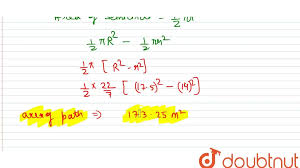 Area of semicircle = 1/2 πr²
1/2 πR² - 1/2 πr²
1/2 π [R² - r²]
1/2 × 22/7 [(17.5)² - (14)²]
area of path ⇒ 173.25 m²
doubtnut